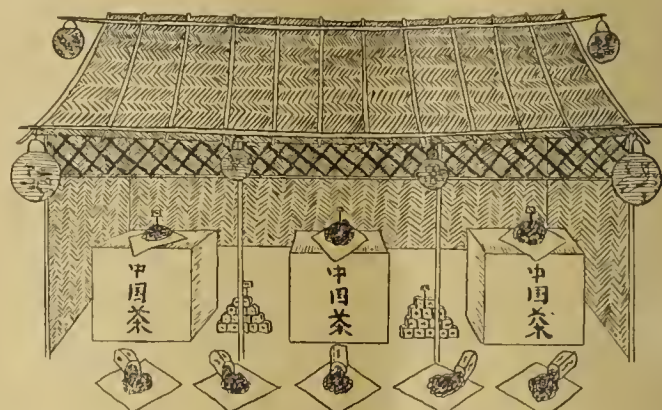 中国茶
中国茶
中国茶